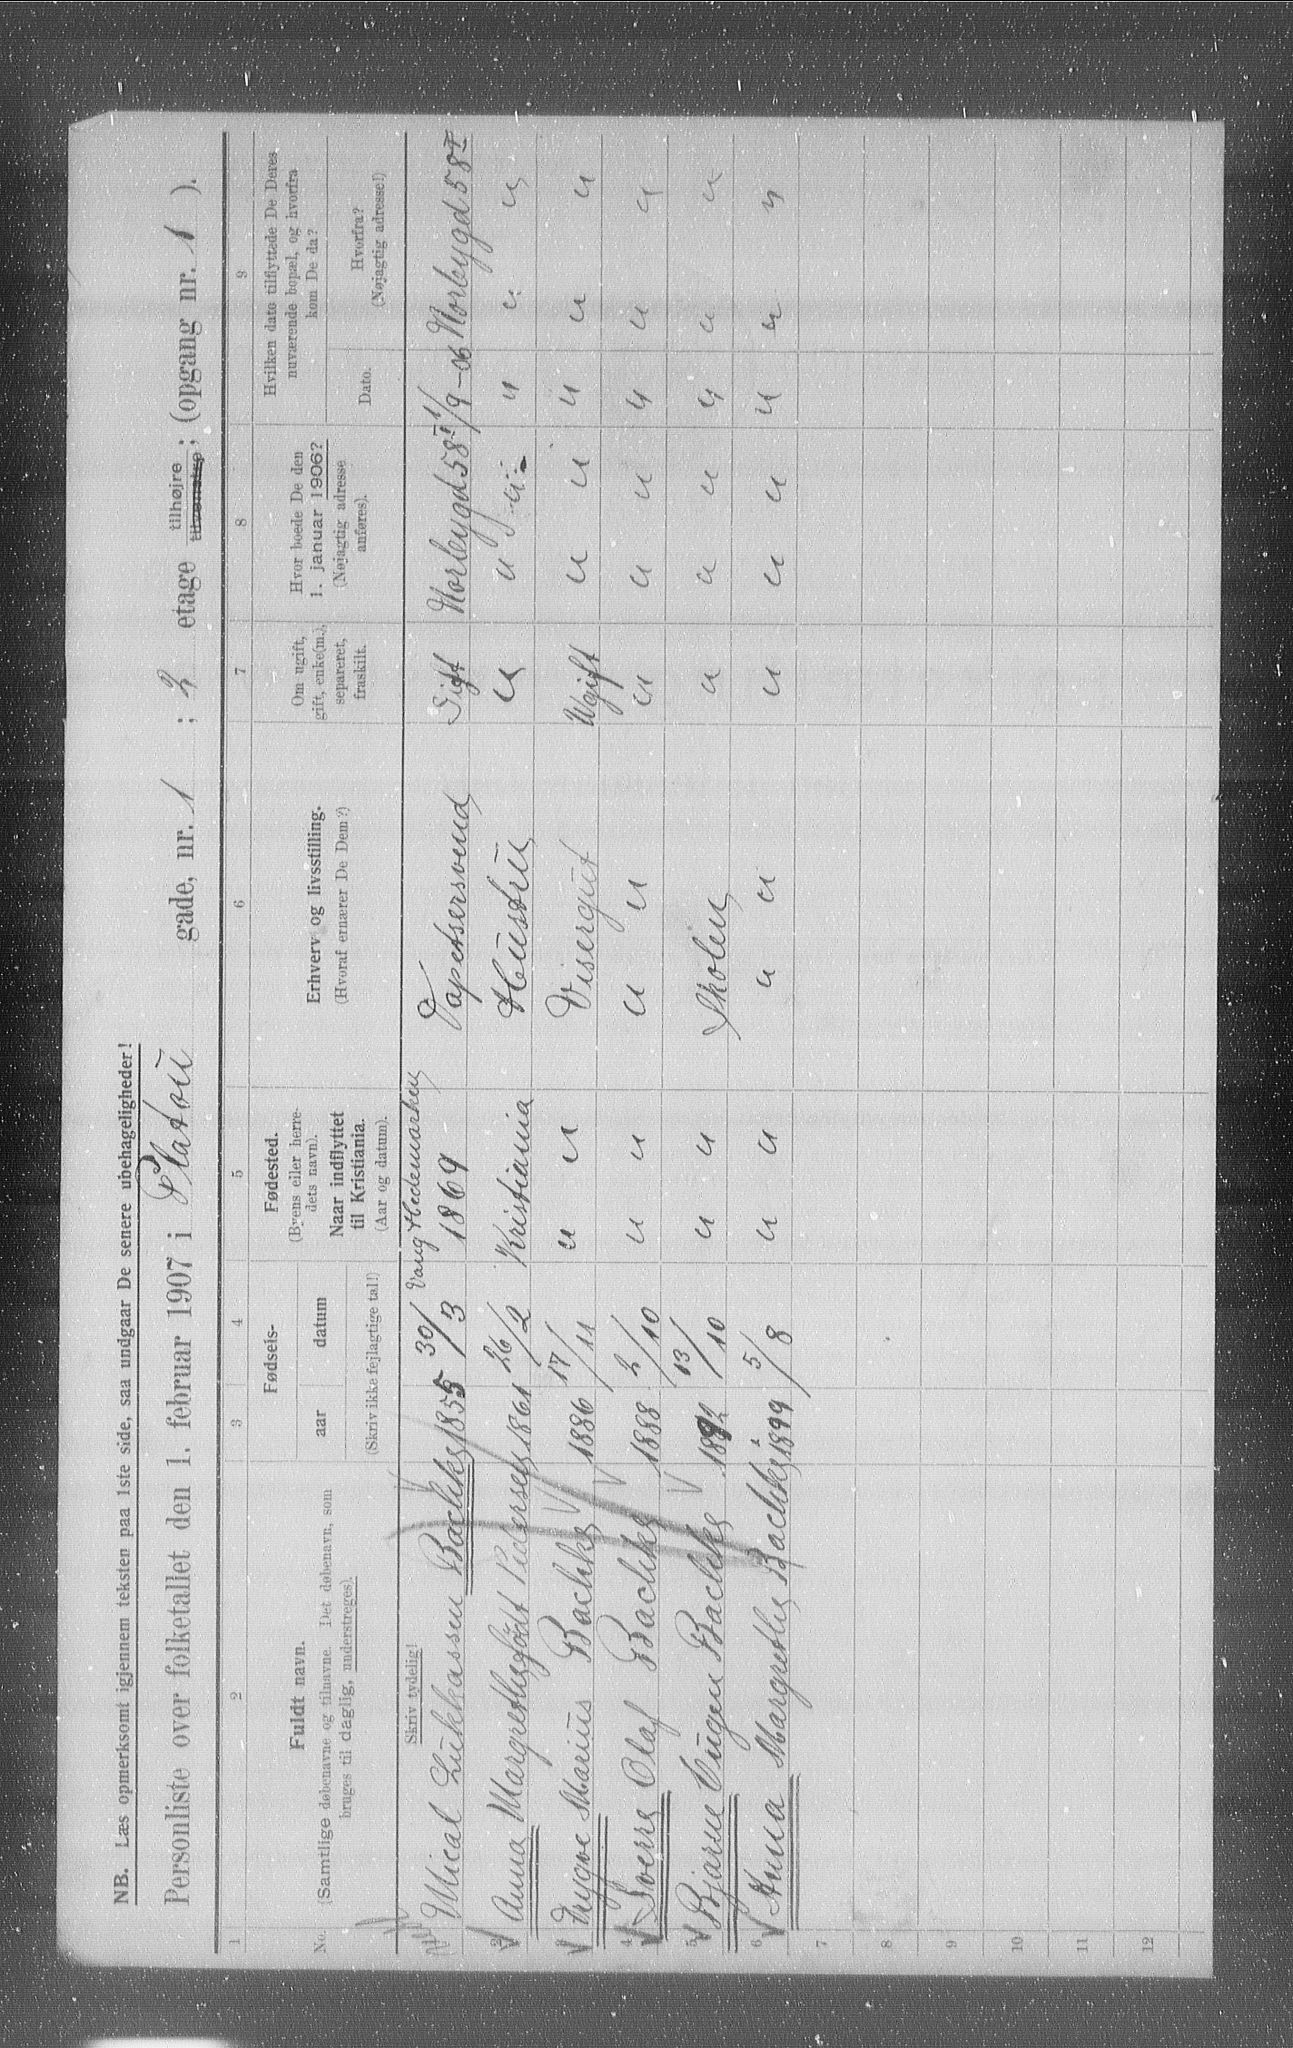 NB. Læs opmerksomt igjennem teksten paa 1ste side, saa undgaar De senere ubehageligheder!
Personliste over folketallet den 1. februar 1907 i Platou gade, nr. 1 ; 2 etage tilhøjre tilvenstre ; (opgang nr. 1 ).
1 2 3 4 5 6 7 8 9
No. Fuldt navn. (Samtlige døbenavne og tilnavne. Det døbenavn, som bruges til daglig, understreges).
Skriv tydelig!
Fødsels- aar datum (Skriv ikke fejlagtige tal!)
Fødested. (Byens eller herredets navn). Naar indflyttet til Kristiania. (Aar og datum).
Erhverv og livsstilling. (Hvoraf ernærer De Dem?)
Om ugift, gift, enke(m.), separeret, fraskilt.
Hvor boede De den 1. januar 1906? (Nøjagtig adresse anføres).
Hvilken dato tilflyttede De Deres nuværende bopæl, og hvorfra kom De da?
Dato. Hvorfra? (Nøjagtig adresse!)
Mical Lukkassen Bachke 1855 30/3 Vang Hedemarken 1869 Tapetsersvend Gift Norbygd 58 I 1/9-06 Norbygd 58 I
2 Anna Margrethe født Pedersen 1861 26/2 Kristiania Hustru " " " " " "
3 Trygve Marius Bachke 1886 17/11 " " Visergut Ugift " " " " "
4 Sverre Olaf Bachke 1888 2/10 " " " " " " " " " "
5 Bjarne Eugen Bachke 1892 13/10 " " Skolen " " " " " "
6 Anna Margrethe Bachke 1899 5/8 " " " " " " " " " "
7
8
9
10
11
12